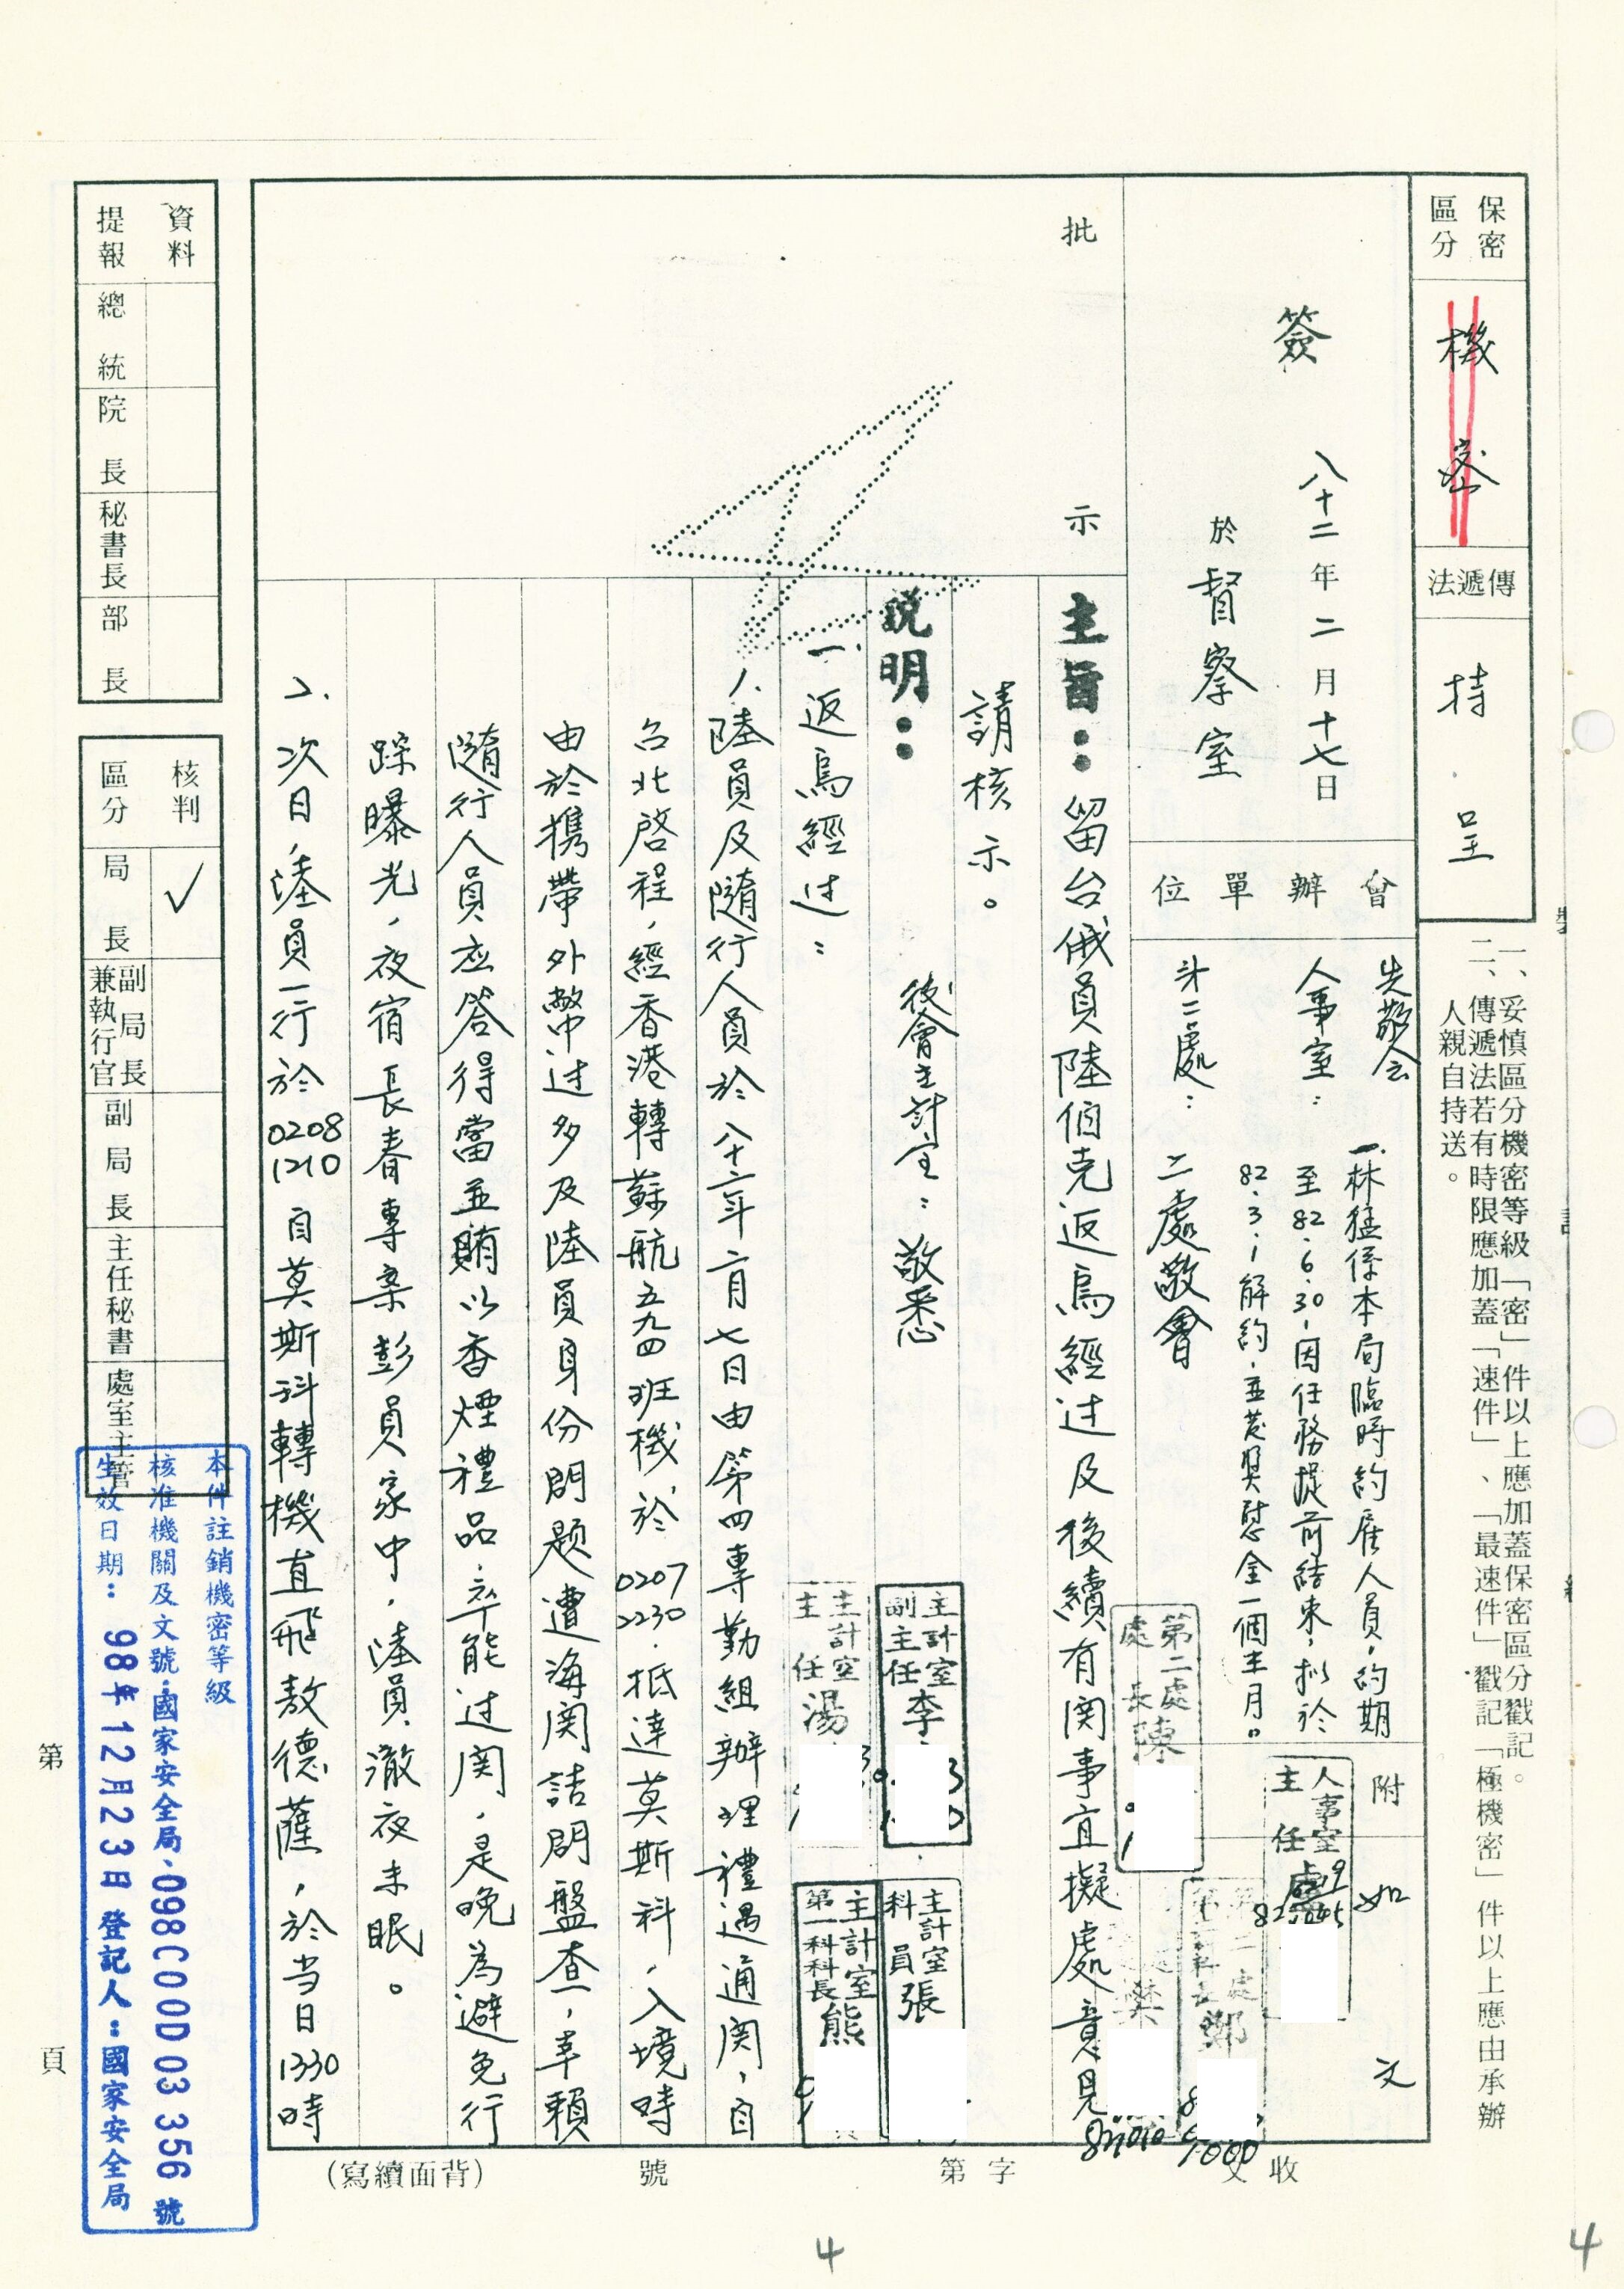 保密
區分
機密
傳遞法
持呈
一、妥慎區分機密等級「密」件以上應加蓋保密區分戳記。
二、傳遞法若有時限應加蓋「速件」、「最速件」戳記「極機密」件以上應由承辦
人親自持送。
裝
訂
線
簽
八十二年二月十七日
於督察室
會辦單位
先敬会
人事室：
一林猛係本局臨時約雇人員，約期
至82.6.30，因任務提前結束，拟於
82.3.1解約，並发奨慰金一個半月。
第二處：
二處敬會
第二處
處長陳
人事室
主任盧
附
如
文
批示
主旨：留台俄員陸伯克返烏經过及後續有関事宜擬處意見
請核示。
後會主計室：敬悉
說明：
主計室
副主任李
主計室
科員張
主計室
主任湯
主計室
第一科科長熊
一、返烏經过：
1.陸員及隨行人員於八十二年二月七日由第四專勤組辦理禮遇通関，自
台北啓程，經香港轉蘇航五九四班機，於0207 2230.抵達莫斯科，入境時
由於携帶外幣过多及陸員身份問題遭海関詰問盤查，幸賴
隨行人員应答得當並賄以香煙禮品，卒能过関，是晚為避免行
踪曝光，夜宿長春專案彭員家中，陸員澈夜未眠。
2.次日，陸員一行於0208 1210自莫斯科轉機直飛敖德薩，於当日1330時
資料
提報
總統
院長
秘書長
部長
核判
區分
局長
✓
副局長
兼執行官
副局長
主任秘書
處室主管
本件註銷機密等級
核准機關及文號：國家安全局、098C00D03356號
生效日期：98年12月23日 登記人：國家安全局
第 頁
收文
字第
號
(背面續寫)
4
4